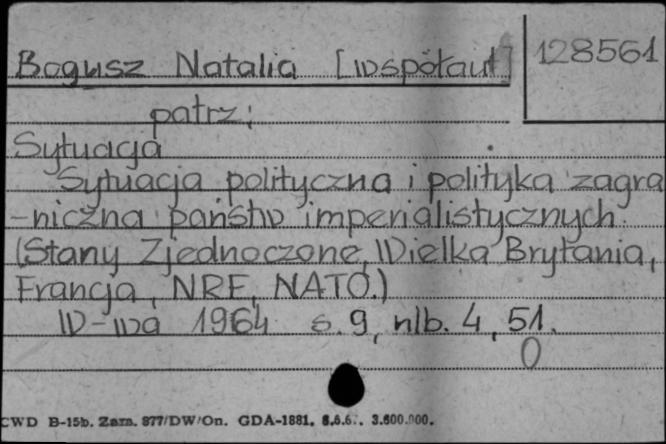 Bogusz Natalia [współaut]
128561
patrz:
Sytuacja
Sytuacja polityczna i polityka zagra
-niczna państw imperialistycznych.
(Stany Zjednoczone, Wielka Brytania,
Francja, NRF, NATO.)
W-wa 1964 s. 9, nlb. 4, 51.
0
CWD B-15b. Zam. 877/DW/On. GDA-1881. 3.600.000.